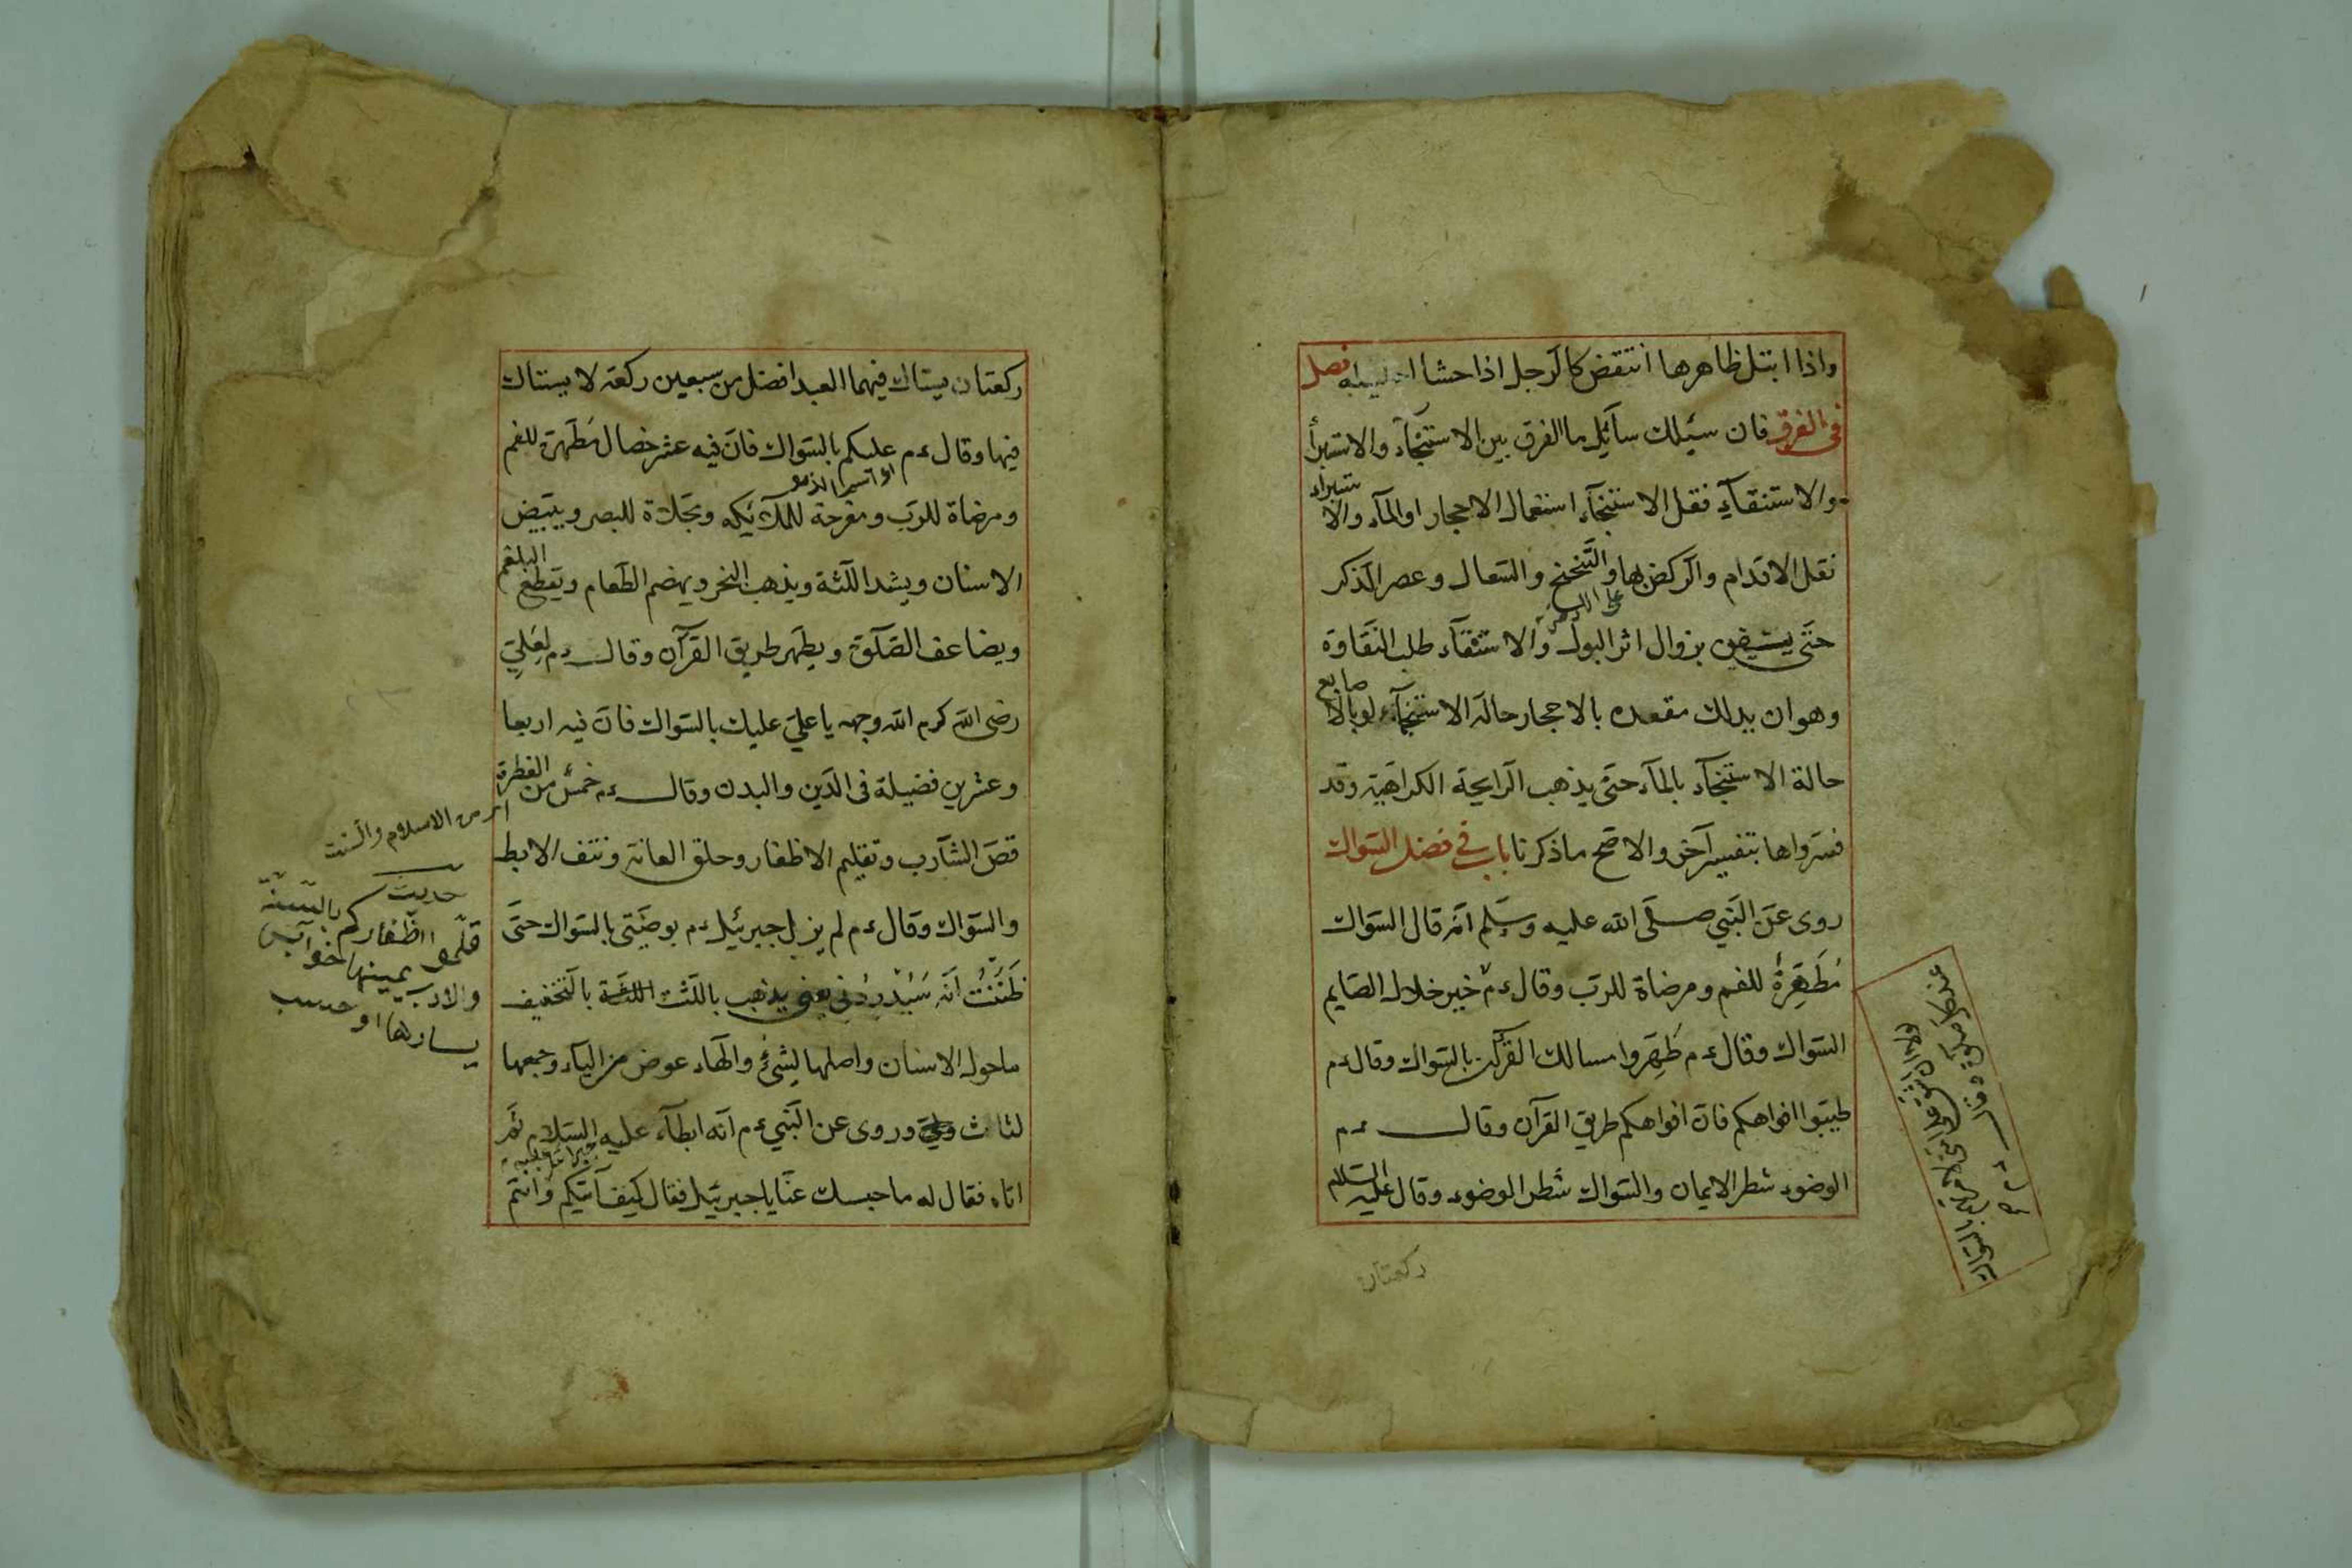 واذا ابتل ظاهرها انتقض كالرجل اذا حشا احليله فصل
فى الفرق فان سئلك سآئل ما الفرق بين الاستنجآء والاستبرأ
والاستنقآء فقل الاستنجآء استعمال الاحجار او المآء والاستبراء
نقل الاقدام والركض بها والتنحنح والسعال وعصر الذكر
حتى يستيقن بزوال اثر البول والاستنقآء طلب النقاوة
وهو ان يدلك مقعده بالاحجار حالة الاستنجآء او بالاصابع
حالة الاستنجآء بالمآء حتى يذهب الرايحة الكراهية وقد
فسرواها بتفسير آخر والاصح ما ذكرنا باب فى فضل السواك
روى عن النبي صلى الله عليه وسلم انه قال السواك
مُطَهِّرَةٌ للفم ومرضاة للرب وقال ءم خير خلال الصايم
السواك وقال ءم طَهِّروا مسالك القرآن بالسواك وقال ءم
طيبوا افواهكم فان افواهكم طريق القرآن وقال ءم
الوضوء شطر الايمان والسواك شطر الوضوء وقال عليه السلام
ركعتان
ركعتان يستاك فيهما العبد افضل من سبعين ركعة لا يستاك
فيها وقال ءم عليكم بالسواك فان فيه عشر خصال مُطَهرة للفم
ومرضاة للرب ومفرحة للملآئكه ومجلاة للبصر ويبيض
الاسنان ويشد اللثة ويذهب البخر ويهضم الطعام ويقطع البلغم
ويضاعف الصلوة ويطهر طريق القرآن وقال ءم لعَلِيّ
رضى الله كرم الله وجهه يا علي عليك بالسواك فان فيه اربعا
وعشرين فضيلة فى الدين والبدن وقال ءم خمس من الفطرة
اى من الاسلام والسنت
قص الشآرب وتقليم الاظفار وحلق العانة ونتف الابط
والسواك وقال ءم لم يزل جبرئيل ءم يوصيني بالسواك حتى
ظَنَنْتُ انه سَيُدْرِدُنِى يعنى يذهب باللثث اللثة بالتخفيف
ما حول الاسنان واصلها لِثىٌ والهاء عوض من اليآء وجمعها
لثاث وروى عن النبي ءم انه ابطآء عليه السلام ثم
اتاه فقال له ما حبسك عنا يا جبرئيل فقال كيف آتيكم وانتم
حديث
قلموا اظفاركم بالسنة
والادب يمينها خوابس
يسارها اوخسب